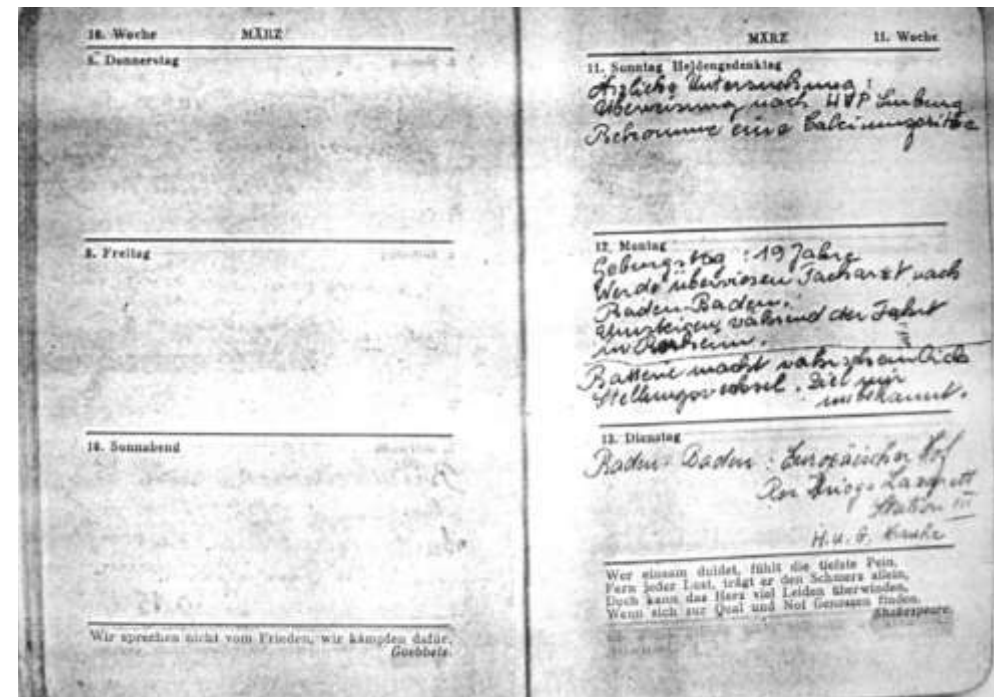 10. Woche MÄRZ
8. Donnerstag
9. Freitag
10. Sonnabend
Wir sprechen nicht vom Frieden, wir kämpfen dafür.
Goebbels.
MÄRZ 11. Woche
11. Sonntag Heldengedenktag
Ärzliche Untersuchung:
Überweisung nach HVP Limburg
Bekomme eine
12. Montag
Geburgstag: 19 Jahre
Werde überwiesen Facharzt nach
Baden-Baden.
Umsteigen während der Fahrt
in
Batterie macht wahrscheinlich
Stellungswechsel. Ziel mir
unbekannt.
13. Dienstag
Baden-Baden: Europäischer Hof
Res Kriegs Lazarett
Station III
H.u.G. Kranke
Wer einsam duldet, fühlt die tiefste Pein,
Fern jeder Lust, trägt er den Schmerz allein,
Doch kann das Herz viel Leiden überwinden,
Wenn sich zur Qual und Not Genossen finden.
Shakespeare.